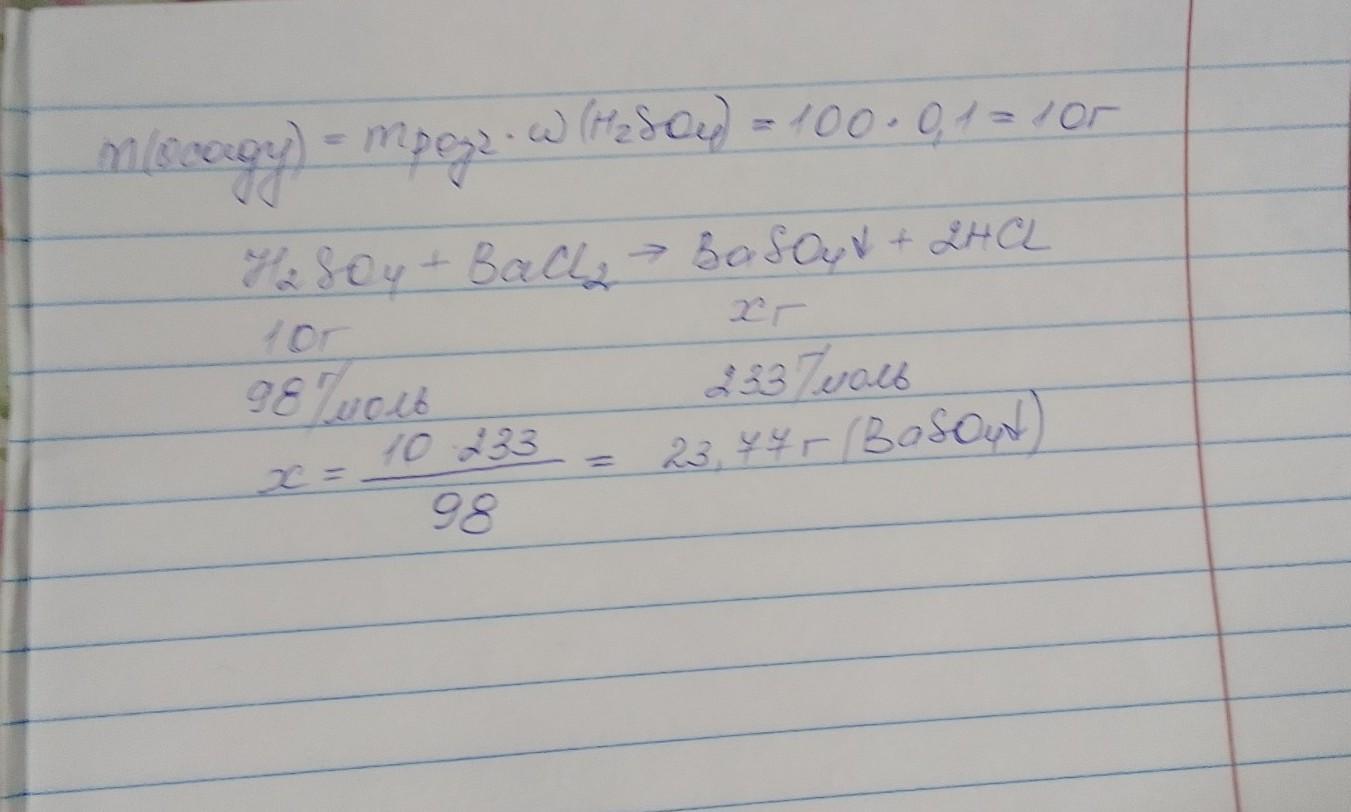 m(осаду) = mрозг · ω(H₂SO₄) = 100 · 0,1 = 10г
H₂SO₄ + BaCl₂ → BaSO₄↓ + 2HCl
10г xг
98 г/моль 233 г/моль
x = 10 · 233 / 98 = 23,77г (BaSO₄↓)